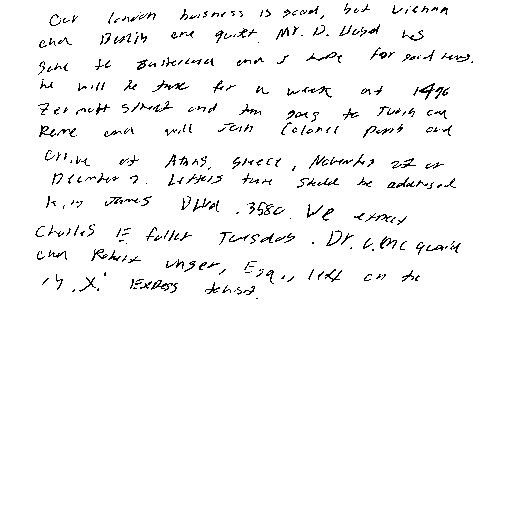 Our london business is good, but vienna
and Berlin are quiet. Mr. D. Lloyd has
gone to Switzerland and I hope for good news.
he will be there for a week at 1496
Zermott Street and then goes to Turin and
Rome and will Join Colonel Parry and
arrive at Athens, Greece, November 27 or
December 2. Letters there should be addressed
King James Blvd. 3580. We expect
Charles E. Fuller Tuesday. Dr. L. McQuaid
and Robert Unger, Esq., left on the
'Y. X.' Express tonight.